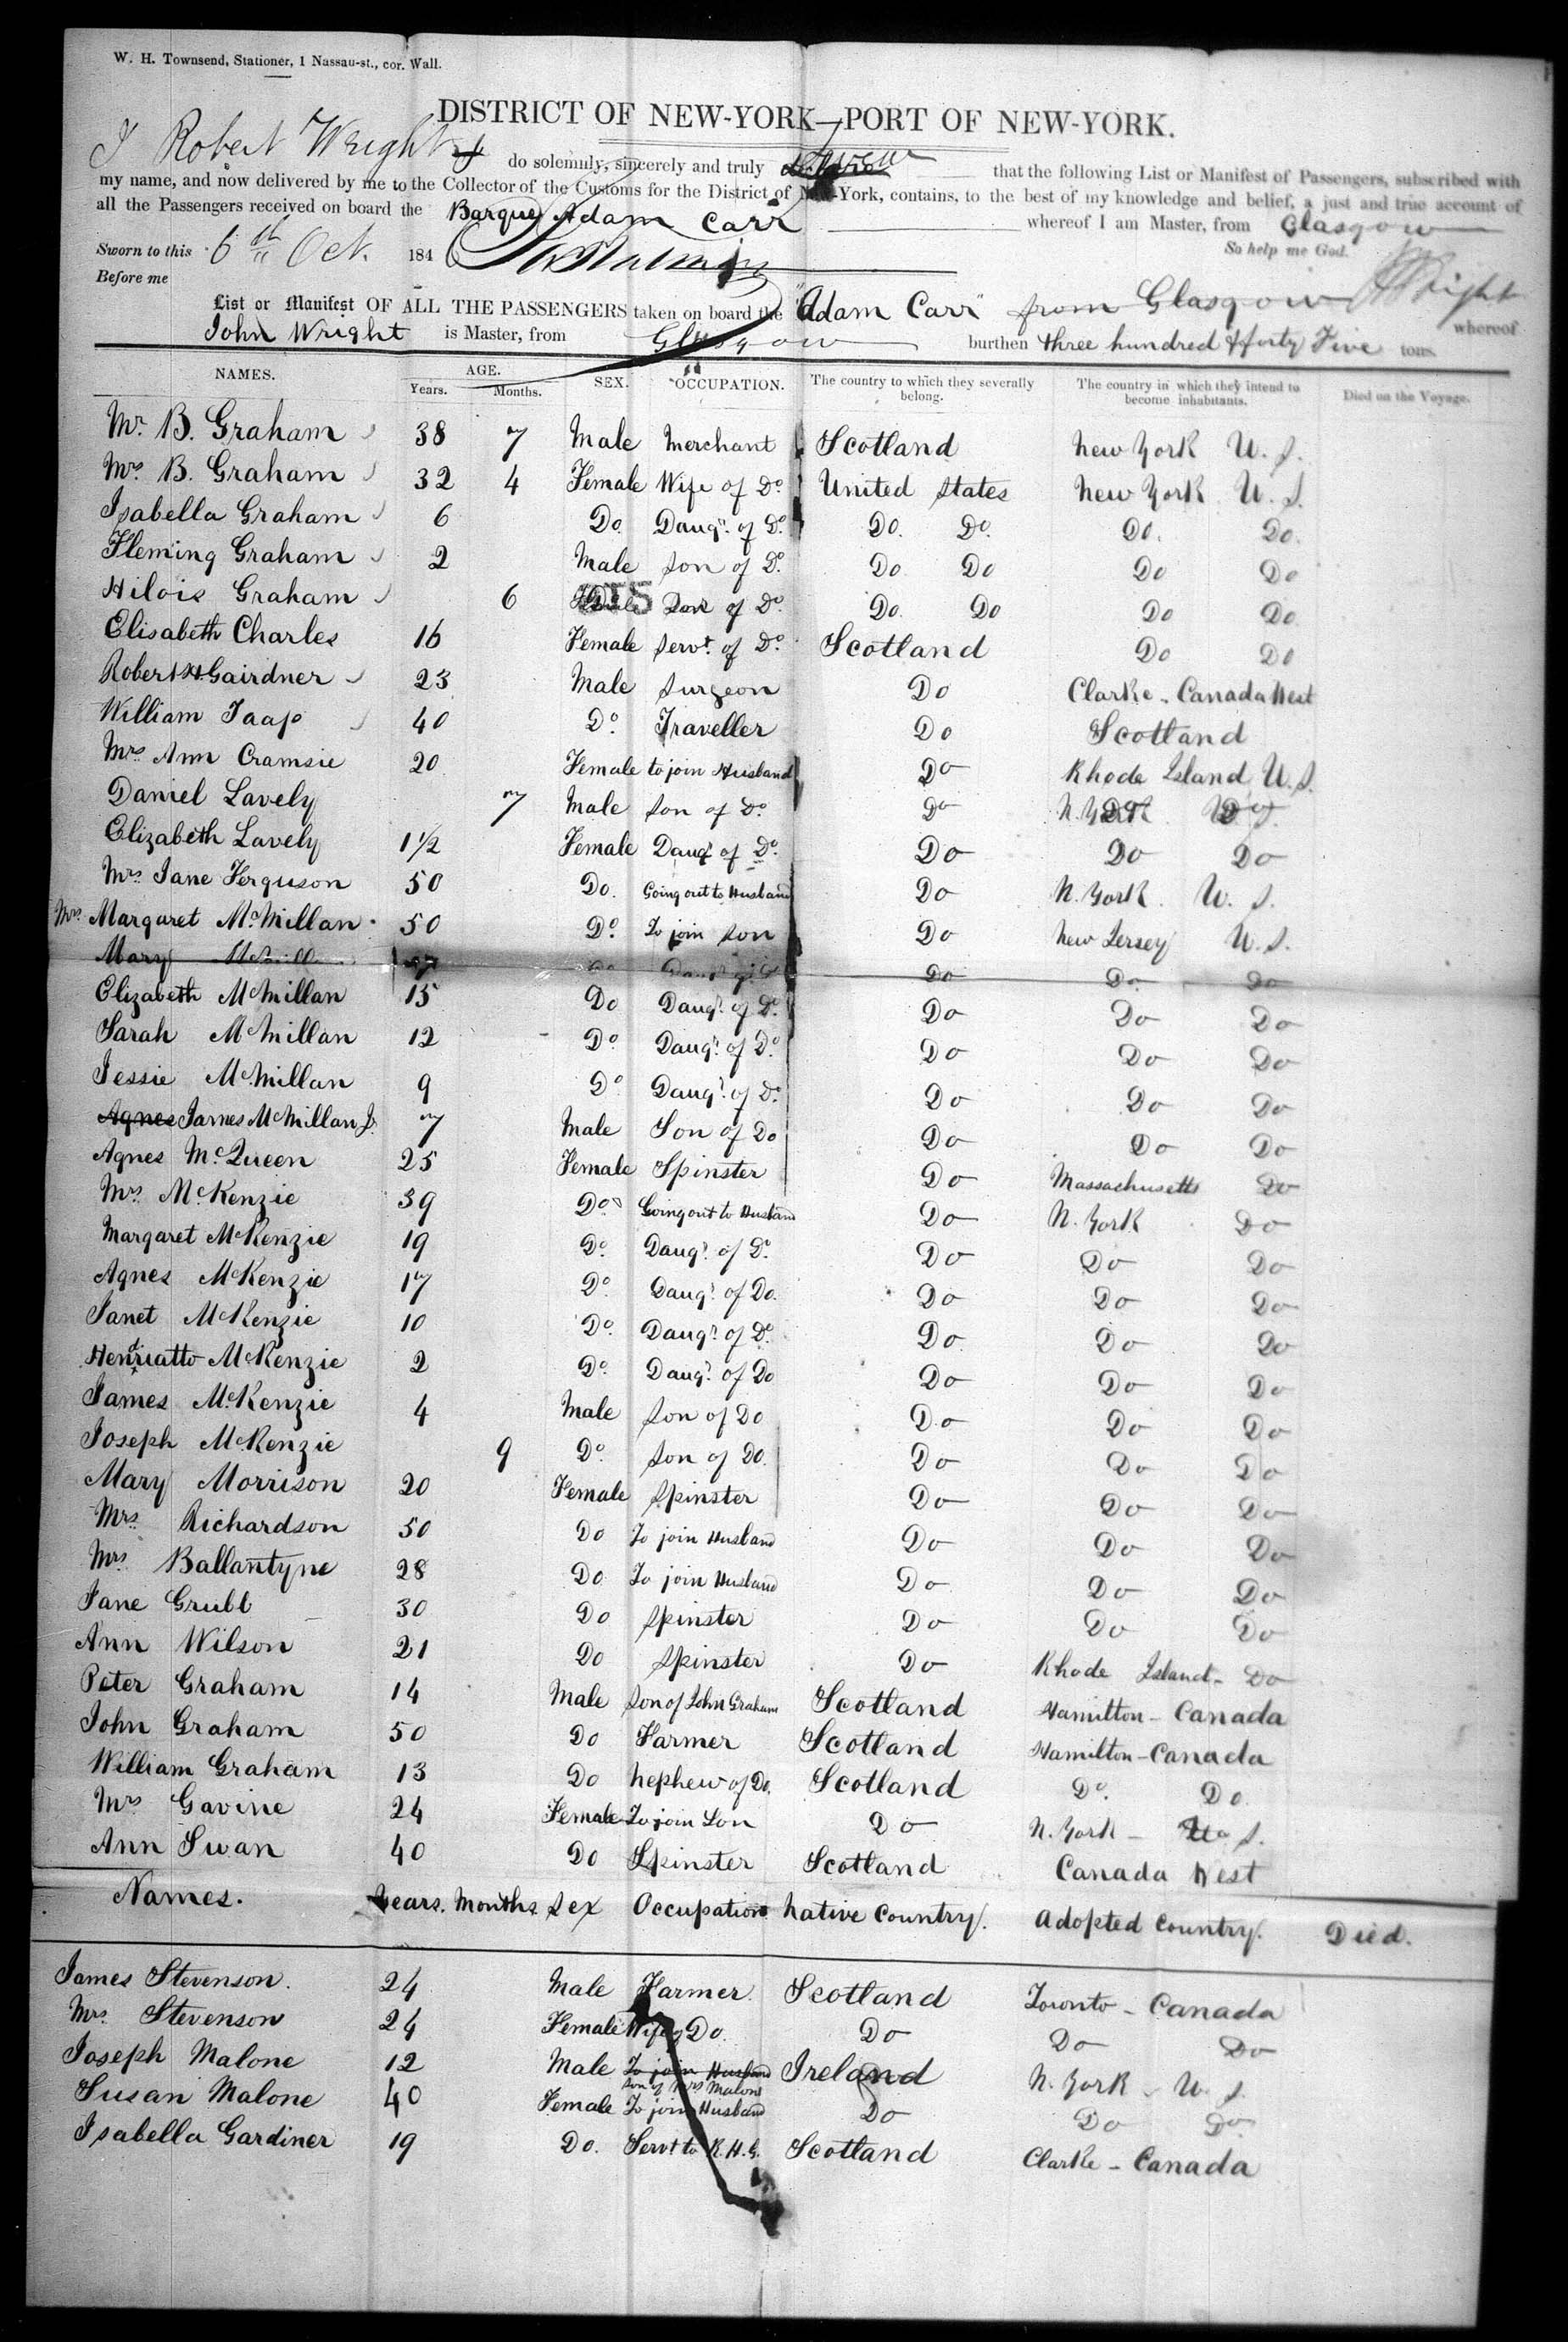 W. H. Townsend, Stationer, 1 Nassau-st., cor. Wall.
DISTRICT OF NEW-YORK—PORT OF NEW-YORK.
I Robert Wright do solemnly, sincerely and truly swear that the following List or Manifest of Passengers, subscribed with
my name, and now delivered by me to the Collector of the Customs for the District of New-York, contains, to the best of my knowledge and belief, a just and true account of
all the Passengers received on board the Barque Adam Carr whereof I am Master, from Glasgow
Sworn to this 6th Oct. 1846 So help me God.
Before me
List or Manifest OF ALL THE PASSENGERS taken on board the "Adam Carr" from Glasgow Wright whereof
John Wright is Master, from Glasgow burthen three hundred & forty Five tons.
NAMES. AGE. Years. Months. SEX. OCCUPATION. The country to which they severally belong. The country in which they intend to become inhabitants. Died on the Voyage.
Mr. B. Graham 38 7 Male Merchant Scotland New York U. S.
Mrs B. Graham 32 4 Female Wife of Do. United States New York U. S.
Isabella Graham 6 Do. Daugr. of Do. Do. Do. Do. Do.
Fleming Graham 2 Male Son of Do. Do Do Do Do
Hilois Graham 6 of Do. Do. Do Do Do.
Elisabeth Charles 16 Female Servt. of Do. Scotland Do Do
Robert H Gairdner 23 Male Surgeon Do Clarke - Canada West
William Jaap 40 Do. Traveller Do Scotland
Mrs Ann Cramsie 20 Female to join Husband Do Rhode Island U. S.
Daniel Lavely 7 Male Son of Do. Do
Elizabeth Lavely 1 1/2 Female Daugr of Do. Do Do Do
Mrs. Jane Ferguson 50 Do. Going out to Husband Do N. York. U. S.
Mrs. Margaret McMillan 50 Do. To join Son Do New Jersey U. S.
Mary Do Do Do
Elizabeth McMillan 15 Do Daugr. of Do. Do Do Do
Sarah McMillan 12 Do. Daugr. of Do. Do Do Do
Jessie McMillan 9 Do Daugr. of Do. Do Do Do
Agnes James McMillan Jr. 7 Male Son of Do Do Do Do
Agnes McQueen 25 Female Spinster Do Massachusetts Do
Mrs. McKenzie 39 Do Going out to Husband Do N. York Do
Margaret McKenzie 19 Do. Daugr. of Do. Do Do Do
Agnes McKenzie 17 Do. Daugr. of Do. Do Do Do
Janet McKenzie 10 Do. Daugr. of Do. Do. Do Do
Henriatto McKenzie 2 Do. Daugr. of Do Do Do Do
James McKenzie 4 Male Son of Do Do Do Do
Joseph McKenzie 9 Do. Son of Do. Do Do Do
Mary Morrison 20 Female Spinster Do Do Do
Mrs. Richardson 50 Do To join Husband Do Do Do
Mrs. Ballantyne 28 Do To join Husband Do Do Do
Jane Grubb 30 Do Spinster Do Do Do
Ann Wilson 21 Do Spinster Do Rhode Island - Do
Peter Graham 14 Male Son of John Graham Scotland Hamilton - Canada
John Graham 50 Do Farmer Scotland Hamilton - Canada
William Graham 13 Do Nephew of Do. Scotland Do. Do.
Mrs Gavine 24 Female To join Son Do N. York - U. S.
Ann Swan 40 Do Spinster Scotland Canada West
Names. Years. Months. Sex Occupation Native Country. Adopted Country. Died.
James Stevenson. 24 Male Farmer. Scotland Toronto - Canada
Mrs. Stevenson 24 Female Wife of Do. Do Do Do
Joseph Malone 12 Male To join Husband Ireland N. York U. S.
Son of Mrs Malone
Susan Malone 40 Female To join Husband Do Do Do
Isabella Gardiner 19 Do. Servt to R. H. G. Scotland Clarke - Canada